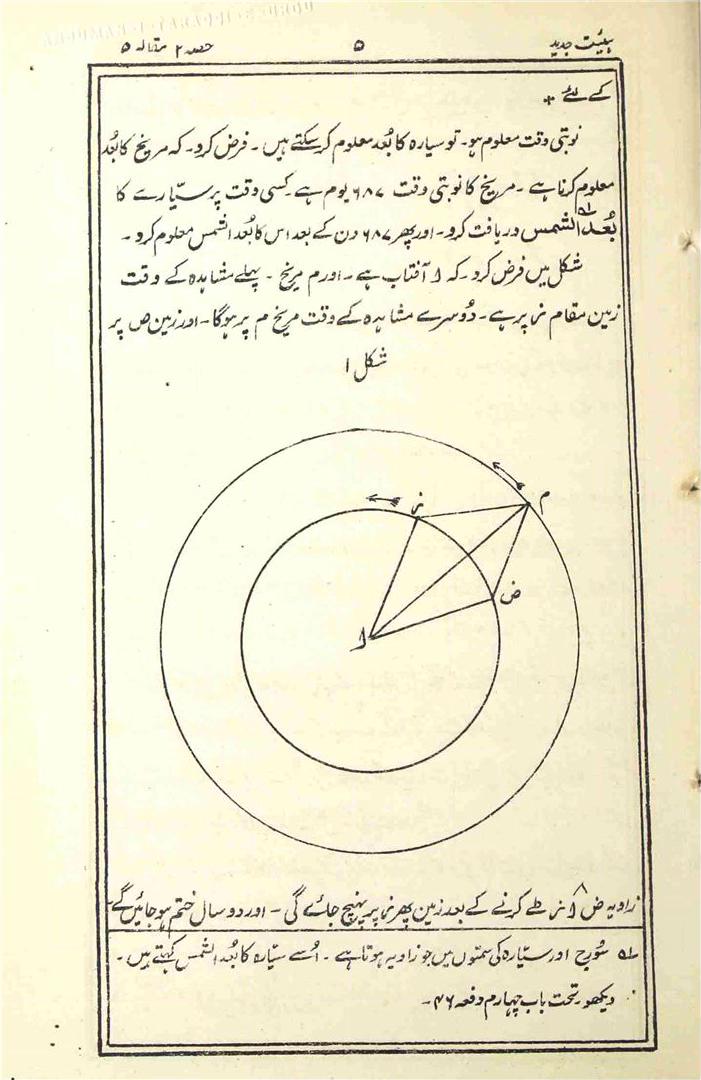 ہیئت جدید ۵ حصہ ۲ مقالہ ۵
کے لئے +
نوبتی وقت معلوم ہو۔ تو سیارہ کا بُعد معلوم کر سکتے ہیں۔ فرض کرو۔ کہ مریخ کا بُعد
معلوم کرنا ہے۔ مریخ کا نوبتی وقت ۶۸۷ یوم ہے۔ کسی وقت پر سیّارے کا
بُعد الشمس ؎۱ دریافت کرو۔ اور پھر ۶۸۷ دن کے بعد اس کا بُعد الشمس معلوم کرو۔
شکل میں فرض کرو۔ کہ ا آفتاب ہے۔ اور م مریخ۔ پہلے مشاہدہ کے وقت
زمین مقام ز پر ہے۔ دُوسرے مشاہدہ کے وقت مریخ م پر ہوگا۔ اور زمین ض پر
شکل ۱
م
ز
ض
ا
زاویہ ض ا ز طے کرنے کے بعد زمین پھر ز پر پہنچ جائے گی۔ اور دو سال ختم ہو جائیں گے۔
؎۱ سُورج اور سیّارہ کی سمتوں میں جو زاویہ ہوتا ہے۔ اُسے سیّارہ کا بُعد الشمس کہتے ہیں۔
دیکھو۔ تحت باب چہارم دفعہ ۴۶۔